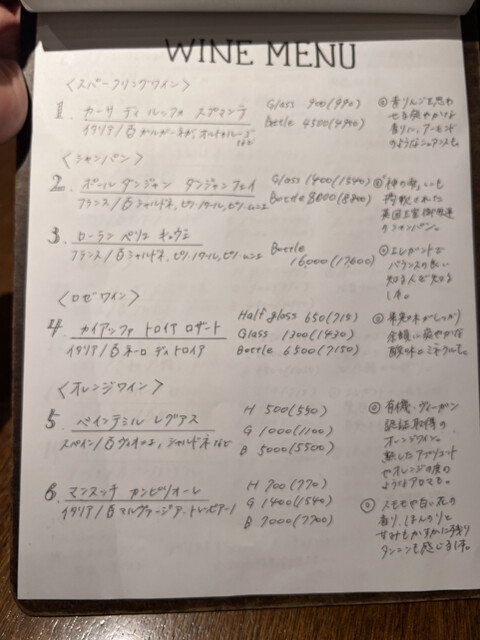 WINE MENU
〈スパークリングワイン〉
1. カーサ ディ ルッフォ スプマンテ Glass 900(990)
イタリア/白ガルガーネガ、 Bottle 4500(4950)
青りんごを思わせる爽やかな香りに、アーモンドのようなニュアンスも。
〈シャンパン〉
2. ポール ダンジャン ダンジャンフェイ Glass 1400(1540)
フランス/白シャルドネ、ピノ・ノワール、ピノ・ムニエ Bottle 8000(8800)
英国王室御用達のシャンパン。
3. ローラン ペリエ キュヴェ Bottle
フランス/白シャルドネ、ピノ・ノワール、ピノ・ムニエ 16,000(17,600)
エレガントでバランスの良い知る人ぞ知る
〈ロゼワイン〉
4. カイアッファ トロイア ロザート Half glass 650(715)
Glass 1300(1430)
イタリア/白ネーロ ディ トロイア Bottle 6500(7150)
果実味がしっかり余韻に爽やかな酸味とミネラルも。
〈オレンジワイン〉
5. ベインテミル レグアス H 500(550)
G 1000(1100)
スペイン/白 シャルドネなど B 5000(5500)
有機・ヴィーガン認証取得のオレンジワイン。熟したアプリコットやオレンジの皮のようなアロマも。
6. マンスッチ カンピリオーレ H 700(770)
G 1400(1540)
イタリア/白マルヴァージア・トレッビアーノ B 7000(7700)
スモモや白い花の香り、ほんのりと甘みもかすかに残りタンニンも感じる